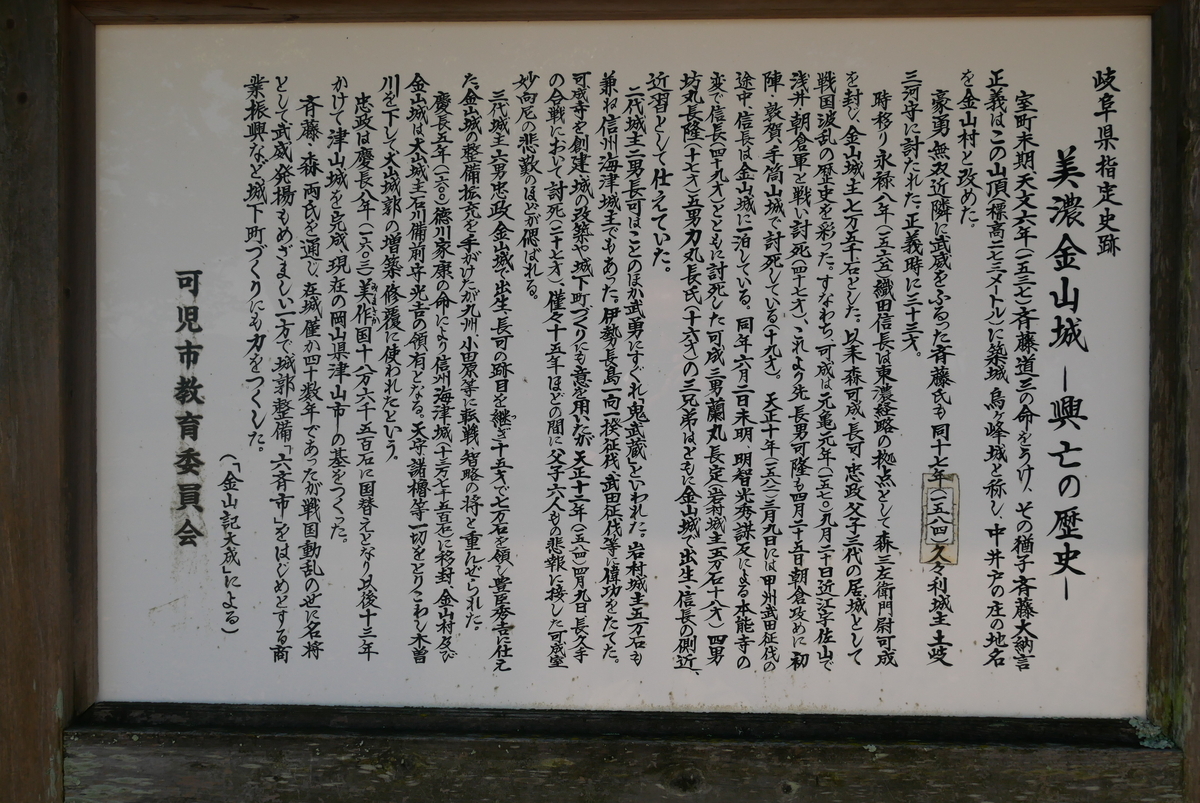 岐阜県指定史跡
美濃金山城 ―興亡の歴史―
室町末期天文六年(一五三七)斉藤道三の命をうけ、その猶子斉藤大納言
正義はこの山頂(標高二七三メートル)に築城、烏ヶ峰城と称し、中井戸の庄の地名
を金山村と改めた。
豪勇無双近隣に武威をふるった斉藤氏も同十七年(一五八四)久々利城主土岐
三河守に討たれた。正義時に三十三才。
時移り永禄八年(一五六五)織田信長は東濃経略の拠点として森三左衛門尉可成
を封し、金山城主七万五千石とした。以来森可成・長可・忠政父子三代の居城として
戦国波乱の歴史を彩った。すなわち可成は元亀元年(一五七〇)九月二十日近江宇佐山で
浅井・朝倉軍と戦い討死(四十七才)、これより先長男可隆も四月二十五日朝倉攻めに初
陣・敦賀・手筒山城で討死している(十九才)。天正十年(一五八二)三月九日には甲州武田征伐の
途中・信長は金山城に一泊している。同年六月二日未明明智光秀謀反による本能寺の
変で信長(四十九才)とともに討死した可成三男蘭丸長定(岩村城主五万石十八才)四男
坊丸長隆(十七才)五男力丸長氏(十六才)の三兄弟はともに金山城で出生・信長の側近、
近習として仕えていた。
二代城主二男長可はことのほか武勇にすぐれ“鬼武蔵”といわれた。岩村城主五万石も
兼ね信州海津城主でもあった。伊勢長島一向一揆征伐・武田征伐等に偉功をたてた。
可成寺を創建、城の改築や城下町づくりにも意を用いたが天正十二年(一五八四)四月九日長久手
の合戦において討死(二十七才)、僅々十五年ほどの間に父子六人もの悲報に接した可成室
妙向尼の悲歎のほどが偲ばれる。
三代城主六男忠政金山城で出生、長可の跡目を継ぎ十五才で七万石を領し豊臣秀吉に仕え
た。金山城の整備拡充を手がけたが九州・小田原等に転戦・智略の将と重んぜられた。
慶長五年(一六〇〇)徳川家康の命により信州海津城(十三万七千五百石)に移封、金山村及び
金山城は犬山城主石川備前守光吉の領有となる。天守・諸櫓等一切をとりこわし木曽
川を下して犬山城郭の増築・修覆に使われたという。
忠政は慶長八年(一六〇三)美作国十八万六千五百石に国替えとなり以後十三年
かけて津山城を完成、現在の岡山県津山市の基をつくった。
斉藤・森両氏を通じ、在城僅か四十数年であったが戦国動乱の世に名将
として武威発揚もめざましい一方で城郭整備「六斉市」をはじめとする商
業振興など城下町づくりにも力をつくした。
(「金山記大成」による)
可児市教育委員会